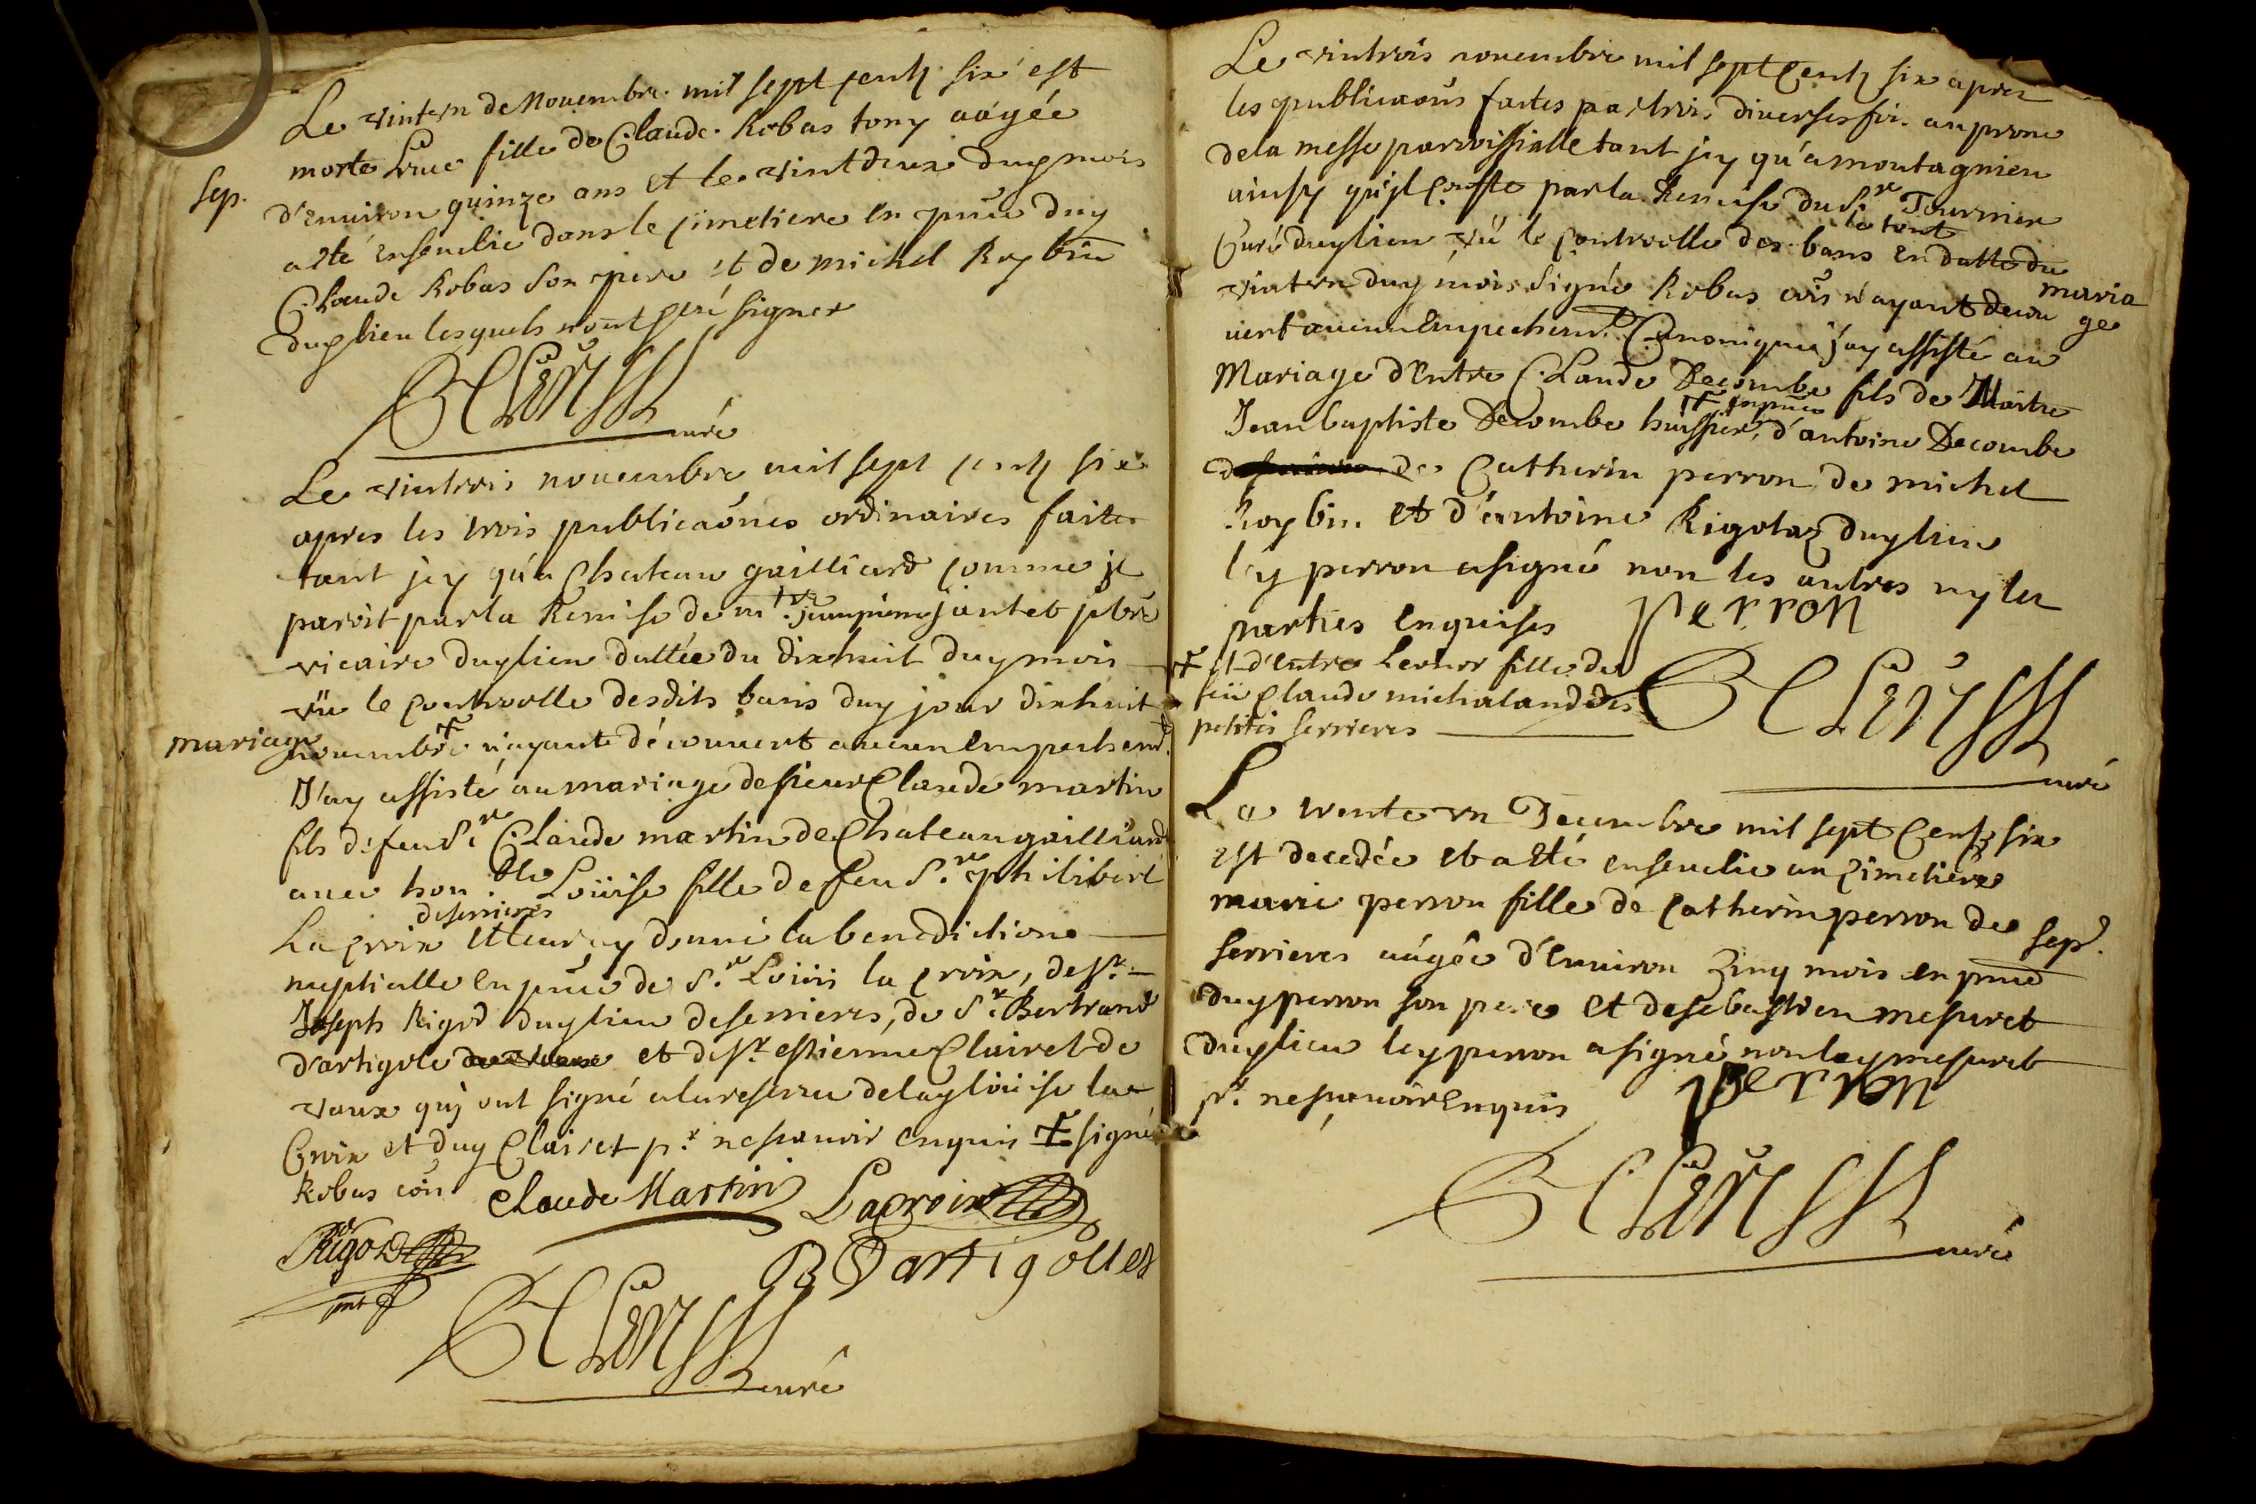 Le vintvn de Novembre mil sept centz six est
morte Luce fille de Claude Robas tony aagée
sep.
d'Environ quinze ans et le vint deux duy mois
a Eté Enseuelie dans le cimetiere en pñce duy
Claude Robas son pere et de Michel Roybin
duy lieu lesquels n'ont sceü signer
curé
Le vintrois nouembre mil sept centz six
apres les trois publicaônes ordinaires faites
tant jcy qu'a Chateau gailliard comme jl
paroit par la Remise de m.re jantet ptre
vicaire duy lieu dattée du dixhuit duy mois
vü le controolle desdits bans duy jour dixhuit
mariage
nouembre ☩ n'ayante découuert aucun Empechem.t
J'ay assisté au mariage de sieur Claude martin
fils de feu S.r Claude martin de Chateau gailliard
auec hon.ble Loüise fille de feu S.r philibert
de serrieres
La croix et leur ay donné la benediction
nuptialle en pñce de S.r Loüis la croix, de S.r
Joseph Rigod duy lieu de serrieres, de S.r Bertrand
d'artigole et de S.r estienne Clairet de
vaux quj ont signé a la reserue de lay loüise la
Croix et duy Clairet p.r ne scauoir enquis ☩ signé
Robas cõn
Claude Martin Lacroix
Rigod
B Dartigolles
curé
Le vintrois nouembre mil sept Centz six apres
les publicaôns faites par trois diuerses fois au prone
de la messe parroissialle tant jcy qu'a montagnieu
ainsy qu'jl conste par la Remise du S.r Tournier
le tout
Curé duy lieu vü le controolle des bans en datte du
vintvn duy mois signé Robas cõn n'ayant decou
maria
ge
uert aucun Empechem.t Canonique j'ay assisté au
Mariage d'Entre Claude Decombe fils de Maitre
☩ en pñce
Jean baptiste Decombe huissier, d'antoine Decombe
de Catherin perron de michel
Roybin et d'antoine Rigolaz duy lieu
l'y perron a signé non les autres ny les
parties Enquises Perron
☩ et d'entre Leonor fille de
feü Claude michaland des
petites serrieres
curé
Le trente vn Decembre mil sept Centz six
est decedée et a Eté enseuelie au cimetiere
marie perron fille de Catherin perron de
sep.
serrieres aagée d'Enuiron Zinq mois en pñce
duy perron son pere et de sebastien mesuret
duy lieu ley perron a signé non ley mesuret
p.r ne scauoir Enquis Perron
curé